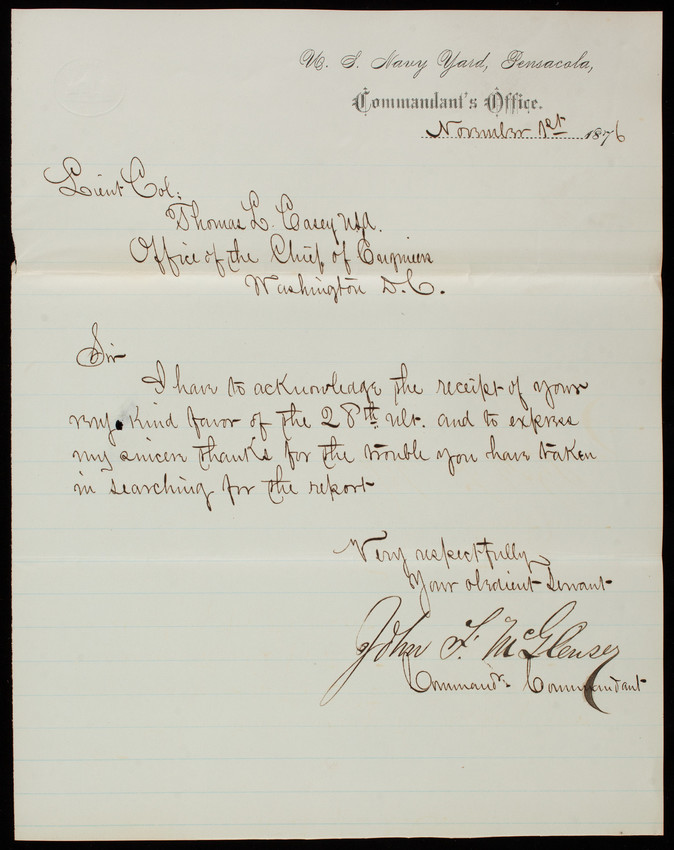 U. S. Navy Yard, Pensacola,
Commandant's Office.
November 1st 1876
Lieut Col:
Thomas L. Casey USA.
Office of the Chief of Engineers
Washington D.C.
Sir
I have to acknowledge the receipt of your
very kind favor of the 28th ult. and to express
my sincere thanks for the trouble you have taken
in searching for the report
Very respectfully
Your obedient Servant
John F. McGlensey
Commandr Commandant